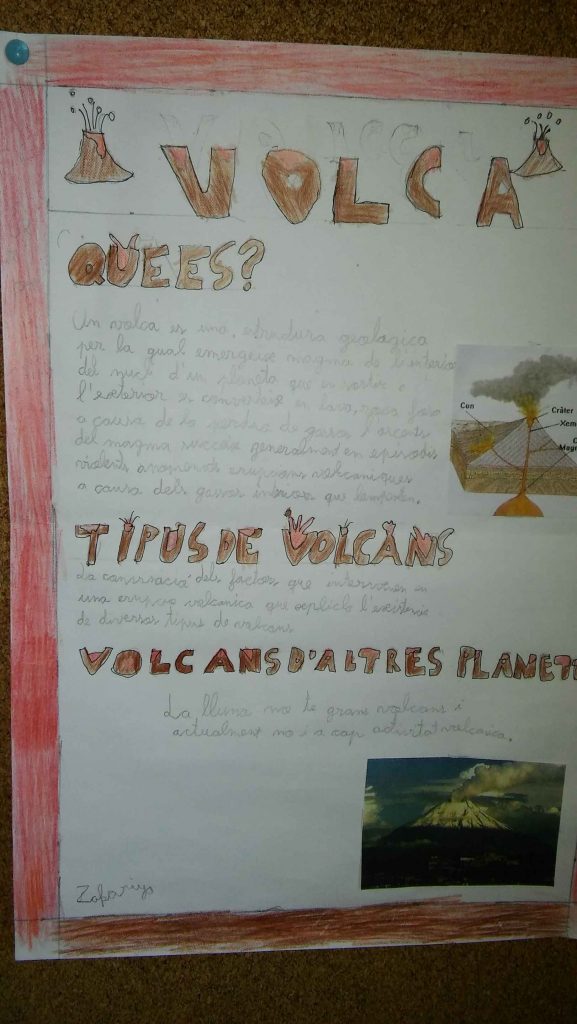 VOLCA
QUE ES?
Un volca es una estructura geologica
per la qual emergeixe magma de l'interior
del nucli d'un planeta que en sortir a
l'exterior es converteix en lava,
a causa de la perdua de gasos
del magma succeix generalment en episodis
violents anomenats erupcions volcaniques
a causa dels gasos interiors que
Con
Cráter
Xem
C
Mag
TÍPUS DE VOLCANS
La dels factors que intervenen en
una erupcio volcanica que l'existencia
de diversos tipus de volcans
VOLCANS D'ALTRES PLANET
La lluna no te grans volcans i
actualment no i a cap activitat volcanica.